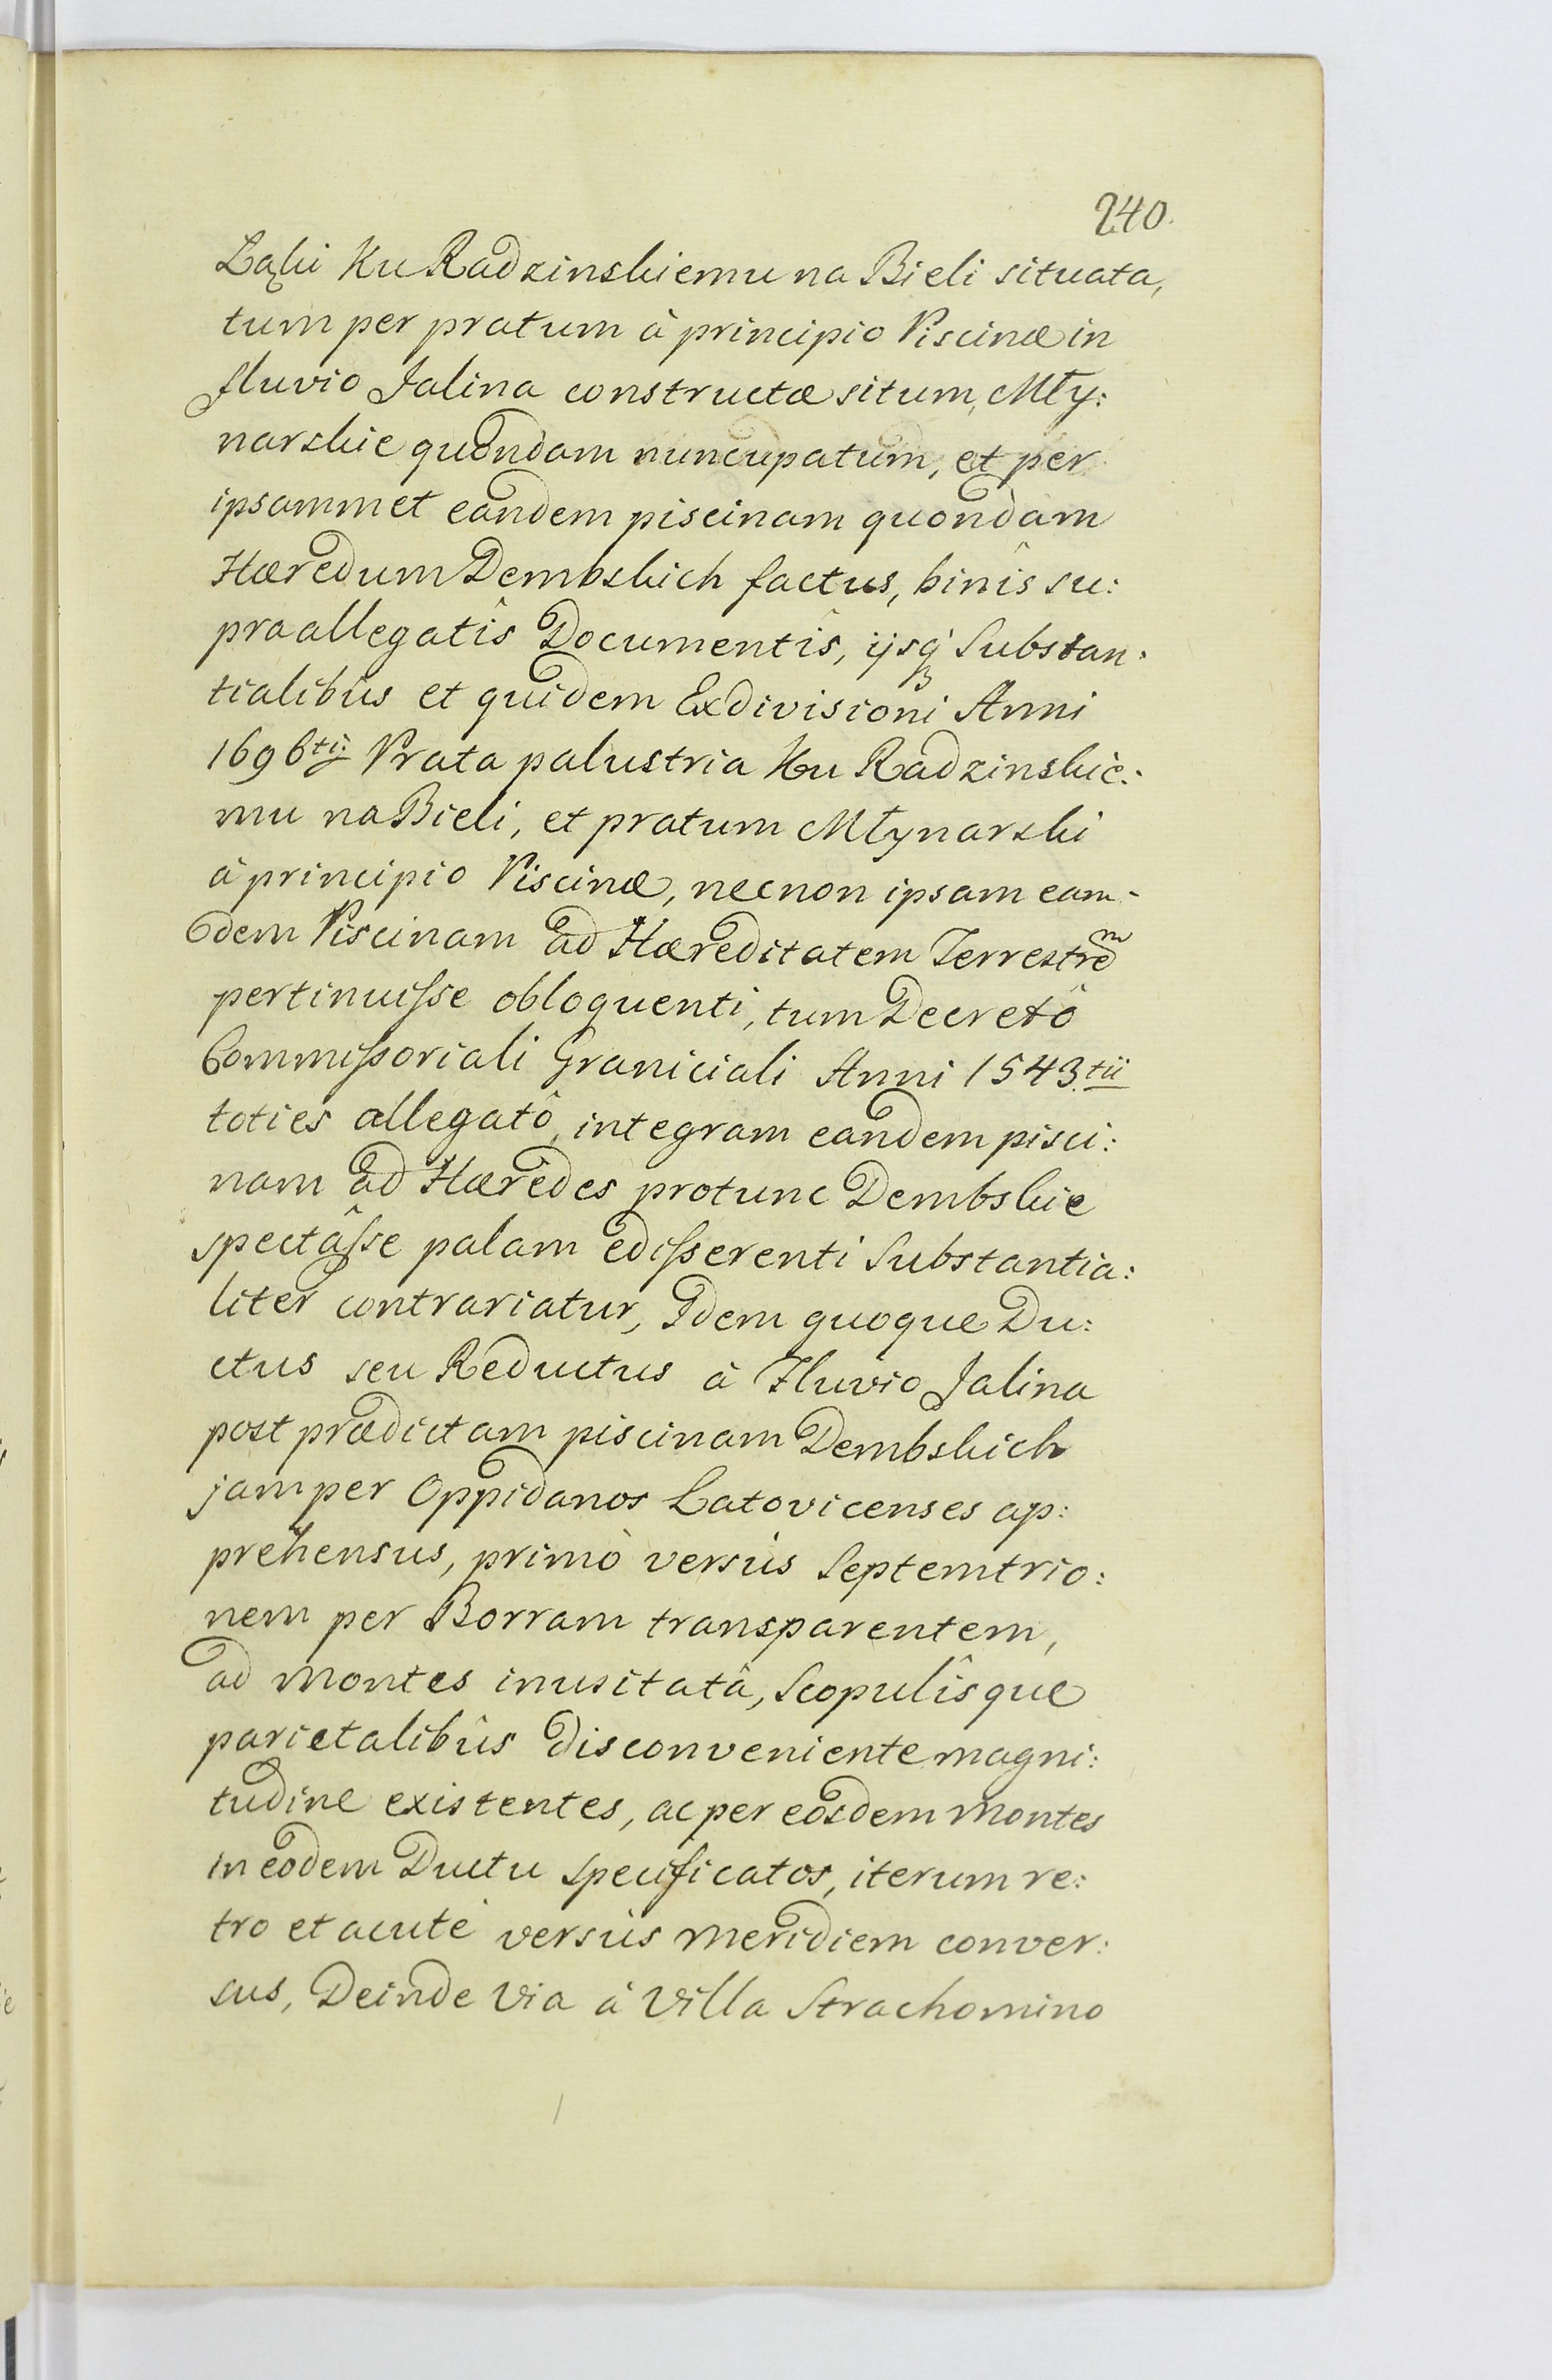 240.
Łąki Ku Radzinskiemu na Bieli situata,
tum per pratum à principio Piscinæ in
fluvio Jalina constructæ situm, Mły:
narskie quondam nuncupatum, et per
ipsammet eandem piscinam quondam
Hæredum Dembskich factus, binîs su:
praallegatîs Documentîs, ijsq́ Substan:
tialibûs et quidem Exdivisioni Anni
1696ti: Prata palustria Ku Radzinskie:
mu na Bieli, et pratum Młynarski
à principio Piscinæ, necnon ipsam eam-
dem Piscinam ad Hæreditatem Terrestrem
pertinuisse obloquenti, tum Decretô
Commissoriali Graniciali Anni 1543.tii
toties allegatô, integram eandem pisci:
nam ad Hæredes protunc Dembskie
spectâsse palam edisserenti Substantia:
liter contrariatur, Idem quoque Du:
ctus seu Reductus à Fluvio Jalina
post prædictam piscinam Dembskich
jam per Oppidanos Latovicenses ap:
prehensus, primò versùs Septemtrio:
nem per Borram transparentem,
ad Montes inusitatâ, Scopulîsque
parietalibûs disconveniente magni:
tudine existentes, ac per eosdem Montes
in eodem Ductu specificatos, iterum re:
tro et acutè versùs Meridiem conver:
sus, Deinde Via à Villa Strachomino